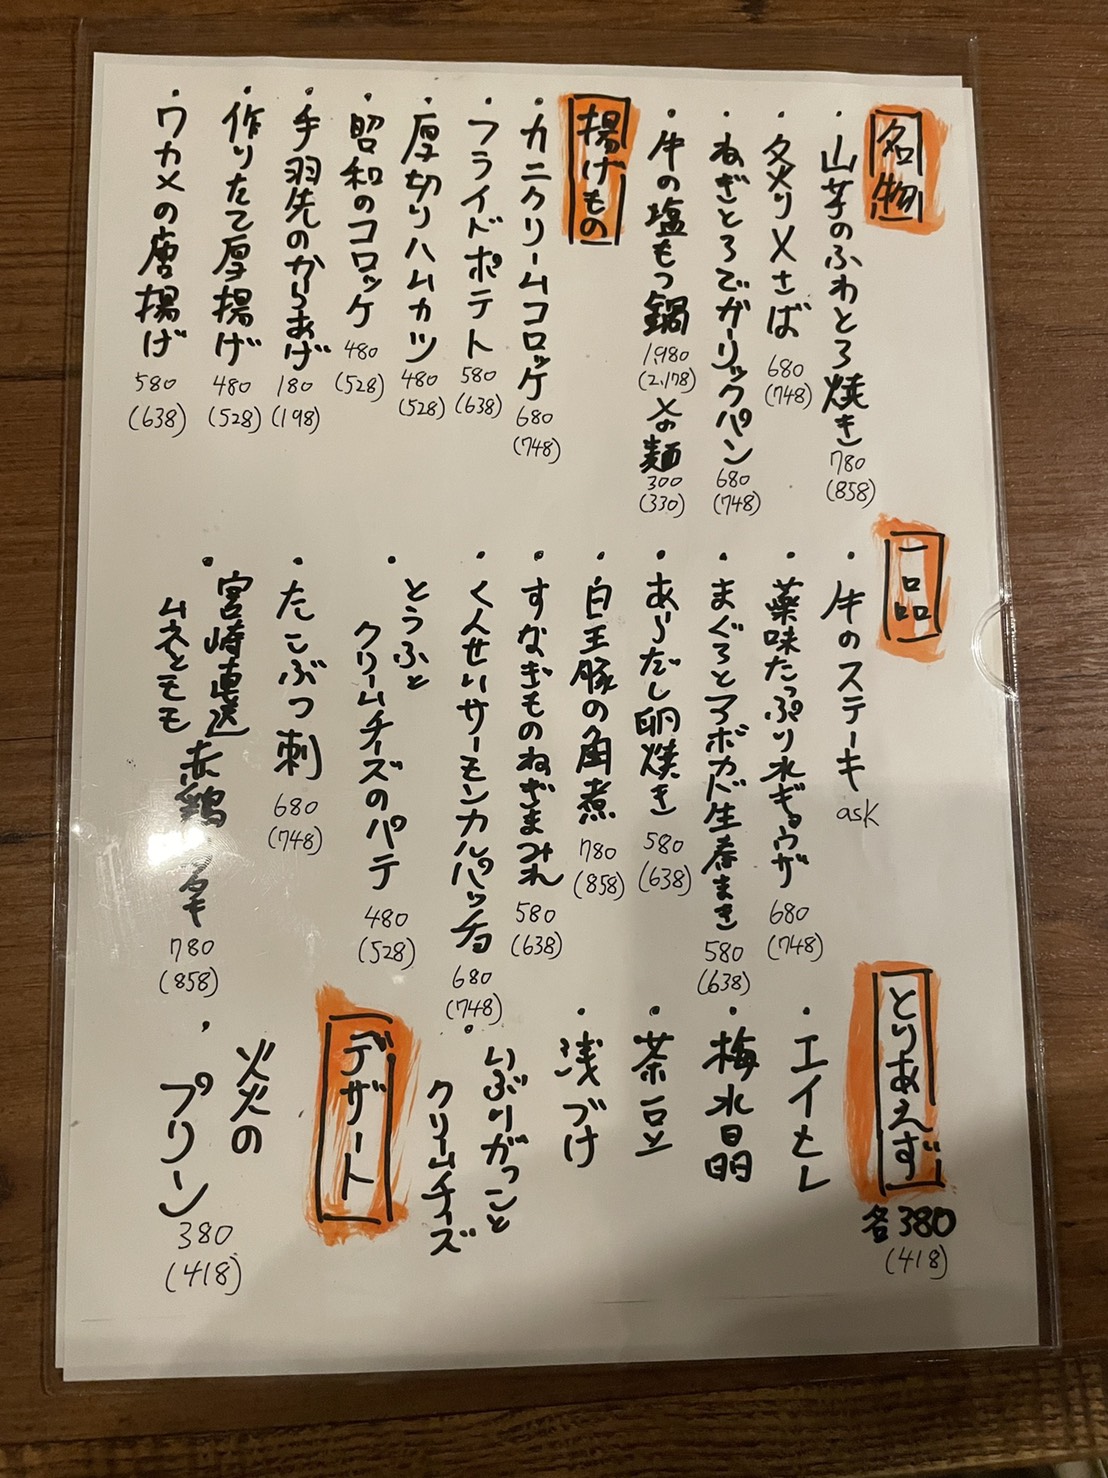 名物
・山芋のふわとろ焼き 780 (858)
・炙り〆さば 680 (748)
・ねぎとろでガーリックパン 680 (748)
・牛の塩もつ鍋 1,980 (2,178) 〆の麺 300 (330)
揚げもの
・カニクリームコロッケ 680 (748)
・フライドポテト 580 (638)
・厚切りハムカツ 480 (528)
・昭和のコロッケ 480 (528)
・手羽先のからあげ 180 (198)
・作りたて厚揚げ 480 (528)
・ワカメの唐揚げ 580 (638)
一品
・牛のステーキ ask
・薬味たっぷり水ギョウザ 680 (748)
・まぐろとアボカド生春まき 580 (638)
・あらだし卵焼き 580 (638)
・白王豚の角煮 780 (858)
・すなぎものねぎまみれ 580 (638)
・くんせいサーモンカルパッチョ 680 (748)
・とうふと
クリームチーズのパテ 480 (528)
・たこぶつ刺 680 (748)
・宮崎直送
ムネとモモ
赤鶏タタキ 780 (858)
とりあえず 各380 (418)
・エイヒレ
・梅水晶
・茶豆
・浅づけ
・いぶりがっこと
クリームチーズ
デザート
・炎の
プリン 380 (418)